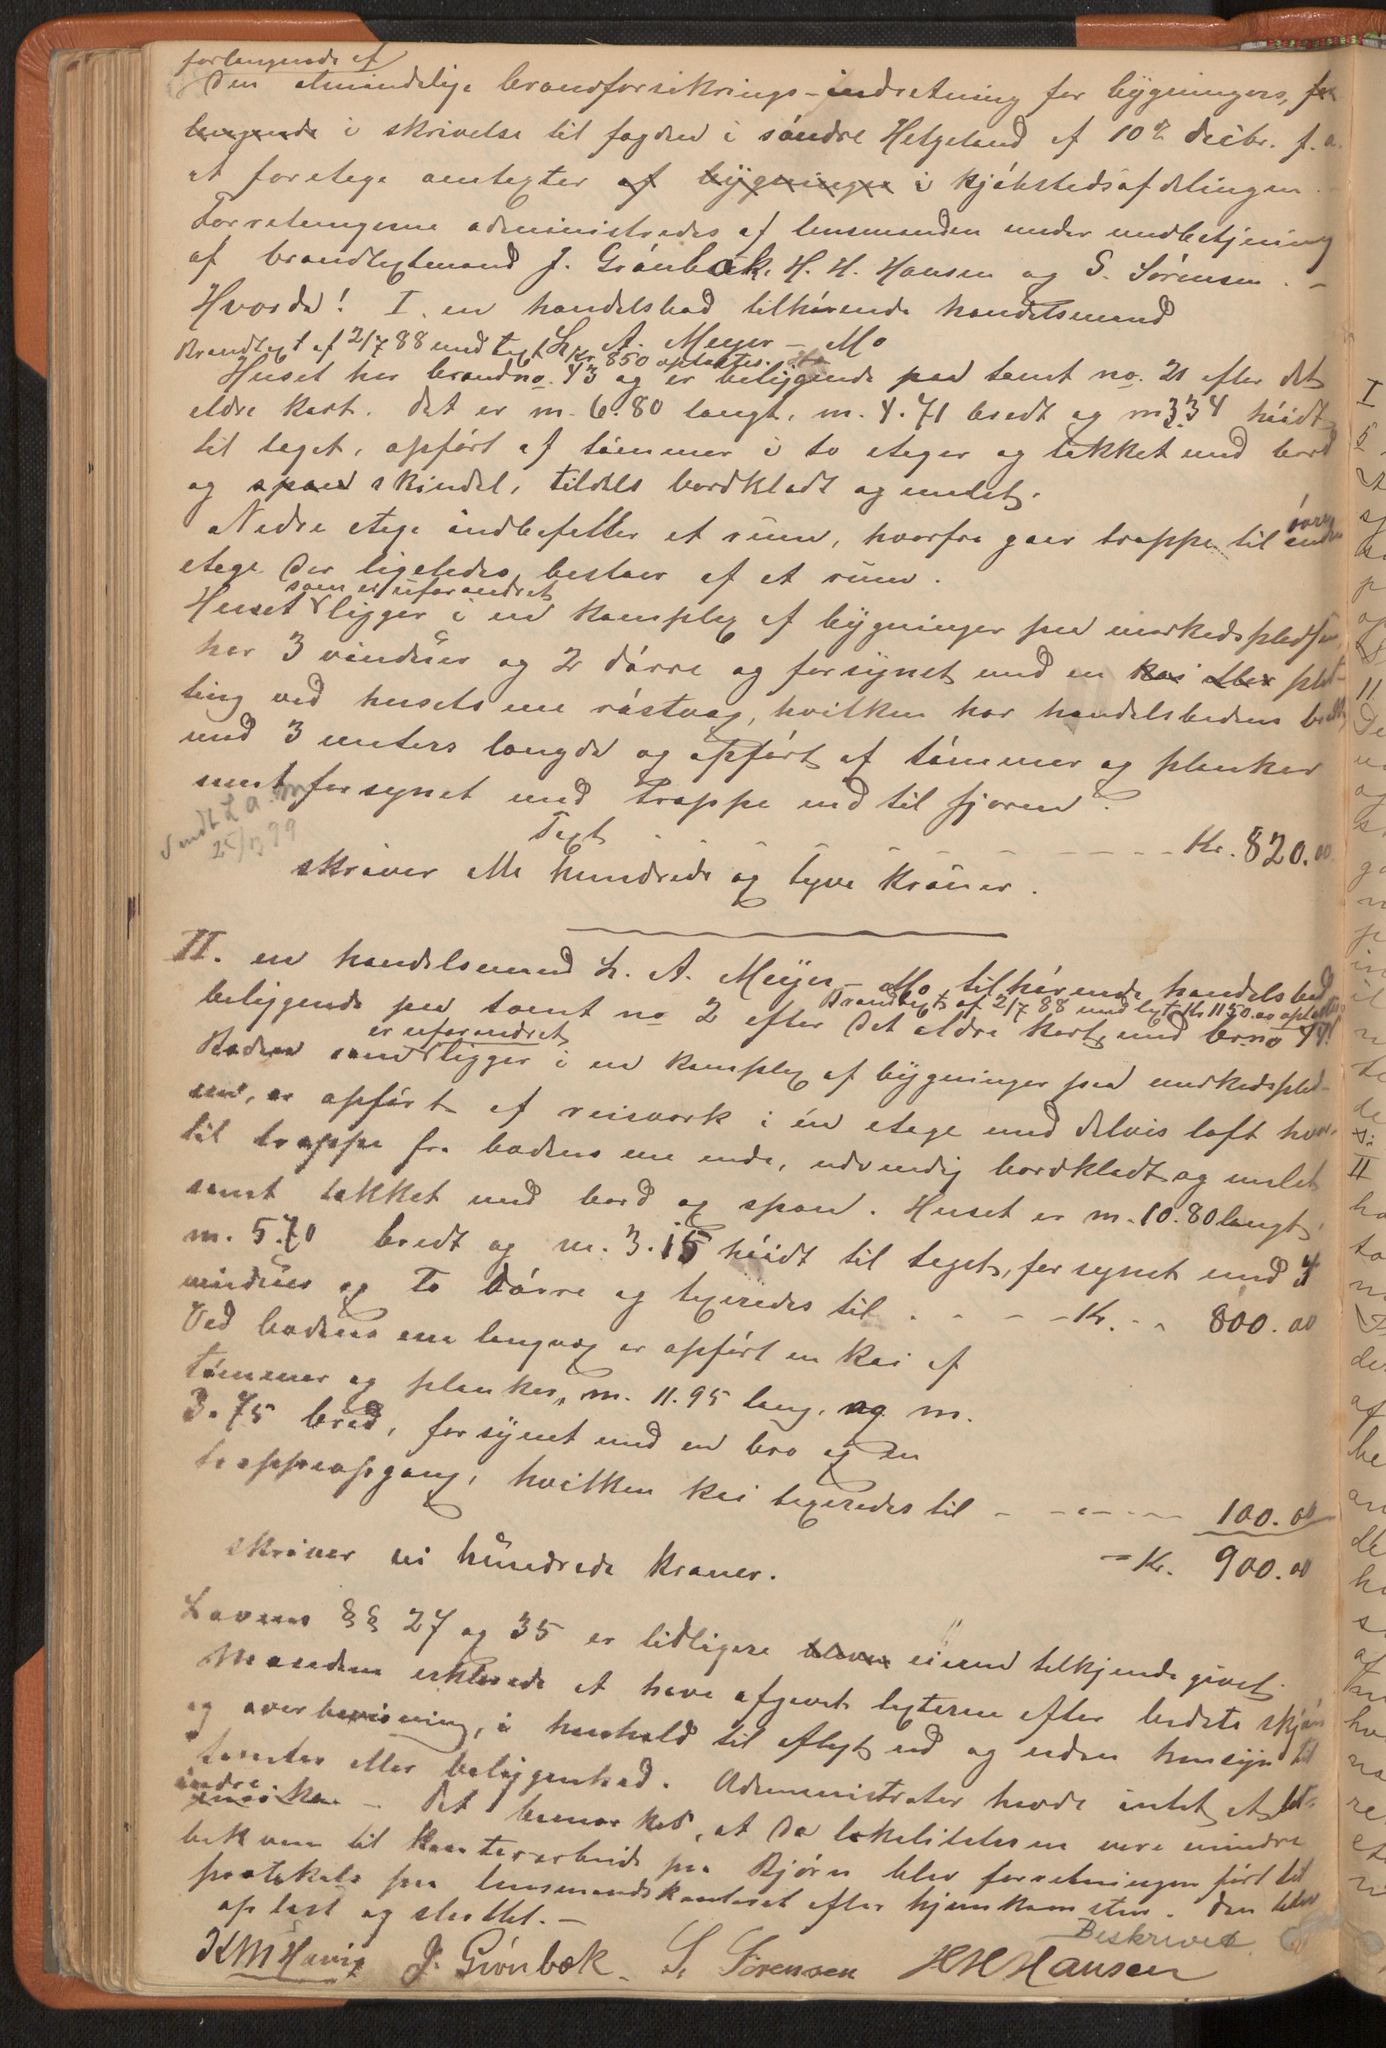 forlangende af
Den almindelige brandforsikrings-indretning for bygningers, for
langende i skrivelse til fogden i søndre Helgeland af 10de decbr. f. a.
at foretage omtaxter af bygninger i kjøbstedsafdelingen. –
Forretningerne administredes af lensmanden under medbetjening
af brandtaxtmænd J. Grønbæk, H. H. Hansen og S. Sørensen. –
Hvorda! I. en handelsbod tilhørende handelsmand
L. A. Meyer – Mo
Brandtaxt af 2/7 88 med taxt Kr. 850 optoges.
Huset har brandno. 43 og er beliggende paa tomt no. 21 efter det
ældre kart. Det er m. 6.80 langt, m. 4.71 bredt og m 3.34 høidt
til taget, opført af tømmer i to etager og tækket med bord
og spaan skindel, tildels bordklædt og malet.
Nedre etage indbefatter et rum, hvorfra gaar trappe til øvre
etage der ligeledes bestaar af et rum.
som er uforandret
Huset ligger i en kompleks af bygninger paa markedspladsen,
har 3 vinduer og 2 dørre og forsynet med en kai eller plat-
ting ved husets ene røstvæg, hvilken har handelsbodens bredde
med 3 meters længde og opført af tømmer og planker
samt forsynet med trappe ned til fjæren.
Sendt L. A. M
25/ 99
Taxt – – – – – – – – Kr. 820.00
skriver otte hundrede og tyve kroner.
II. en handelsmand L. A. Meyer – Mo tilhørende handelsbod
Brandtaxt af 2/7 88 med taxt Kr 1150.00 optoges
beliggende paa tomt no 2 efter det ældre kart, med br no 44!
er uforandret
Boden som ligger i en kompleks af bygninger paa markedsplad-
sen, er opført af reisværk i én etage med delvis loft hvor-
til trappe fra bodens ene ende, udvendig bordklædt og malet
samt tækket med bord og spaan. Huset er m. 10.80 langt,
m. 5.70 bredt og m. 3.15 høidt til taget, forsynet med 3
vinduer og to dørre og taxeredes til . – – – Kr. – – 800.00
Ved bodens ene langvæg er opført en kai af
tømmer og planker, m. 11.95 lang, og m.
3.75 bred, forsynet med en bro og en
trappeopgang, hvilken kai taxeredes til – – – – – 100.00
– Kr. 900.00
skriver ni hundrede kroner.
Lovens §§ 27 og 35 er tidligere eieren tilkjendegivet.
Mændene erklærede at have afgivet taxterne efter bedste skjøn
og overbevisning, i henhold til aflagt ed og uden hensyn til
tomter eller beliggenhed. Administrator havde intet at
indre
– Det bemærkes, at da lokaliteterne vare mindre
bekvem til kontorarbeide paa Bjørn blev forretningen ført til
protokols paa lensmandskontoret efter hjemkomsten. Den blev
oplæst og sluttet. –
Beskrivet
KM Havig J. Grønbæk S. Sørensen HH Hansen